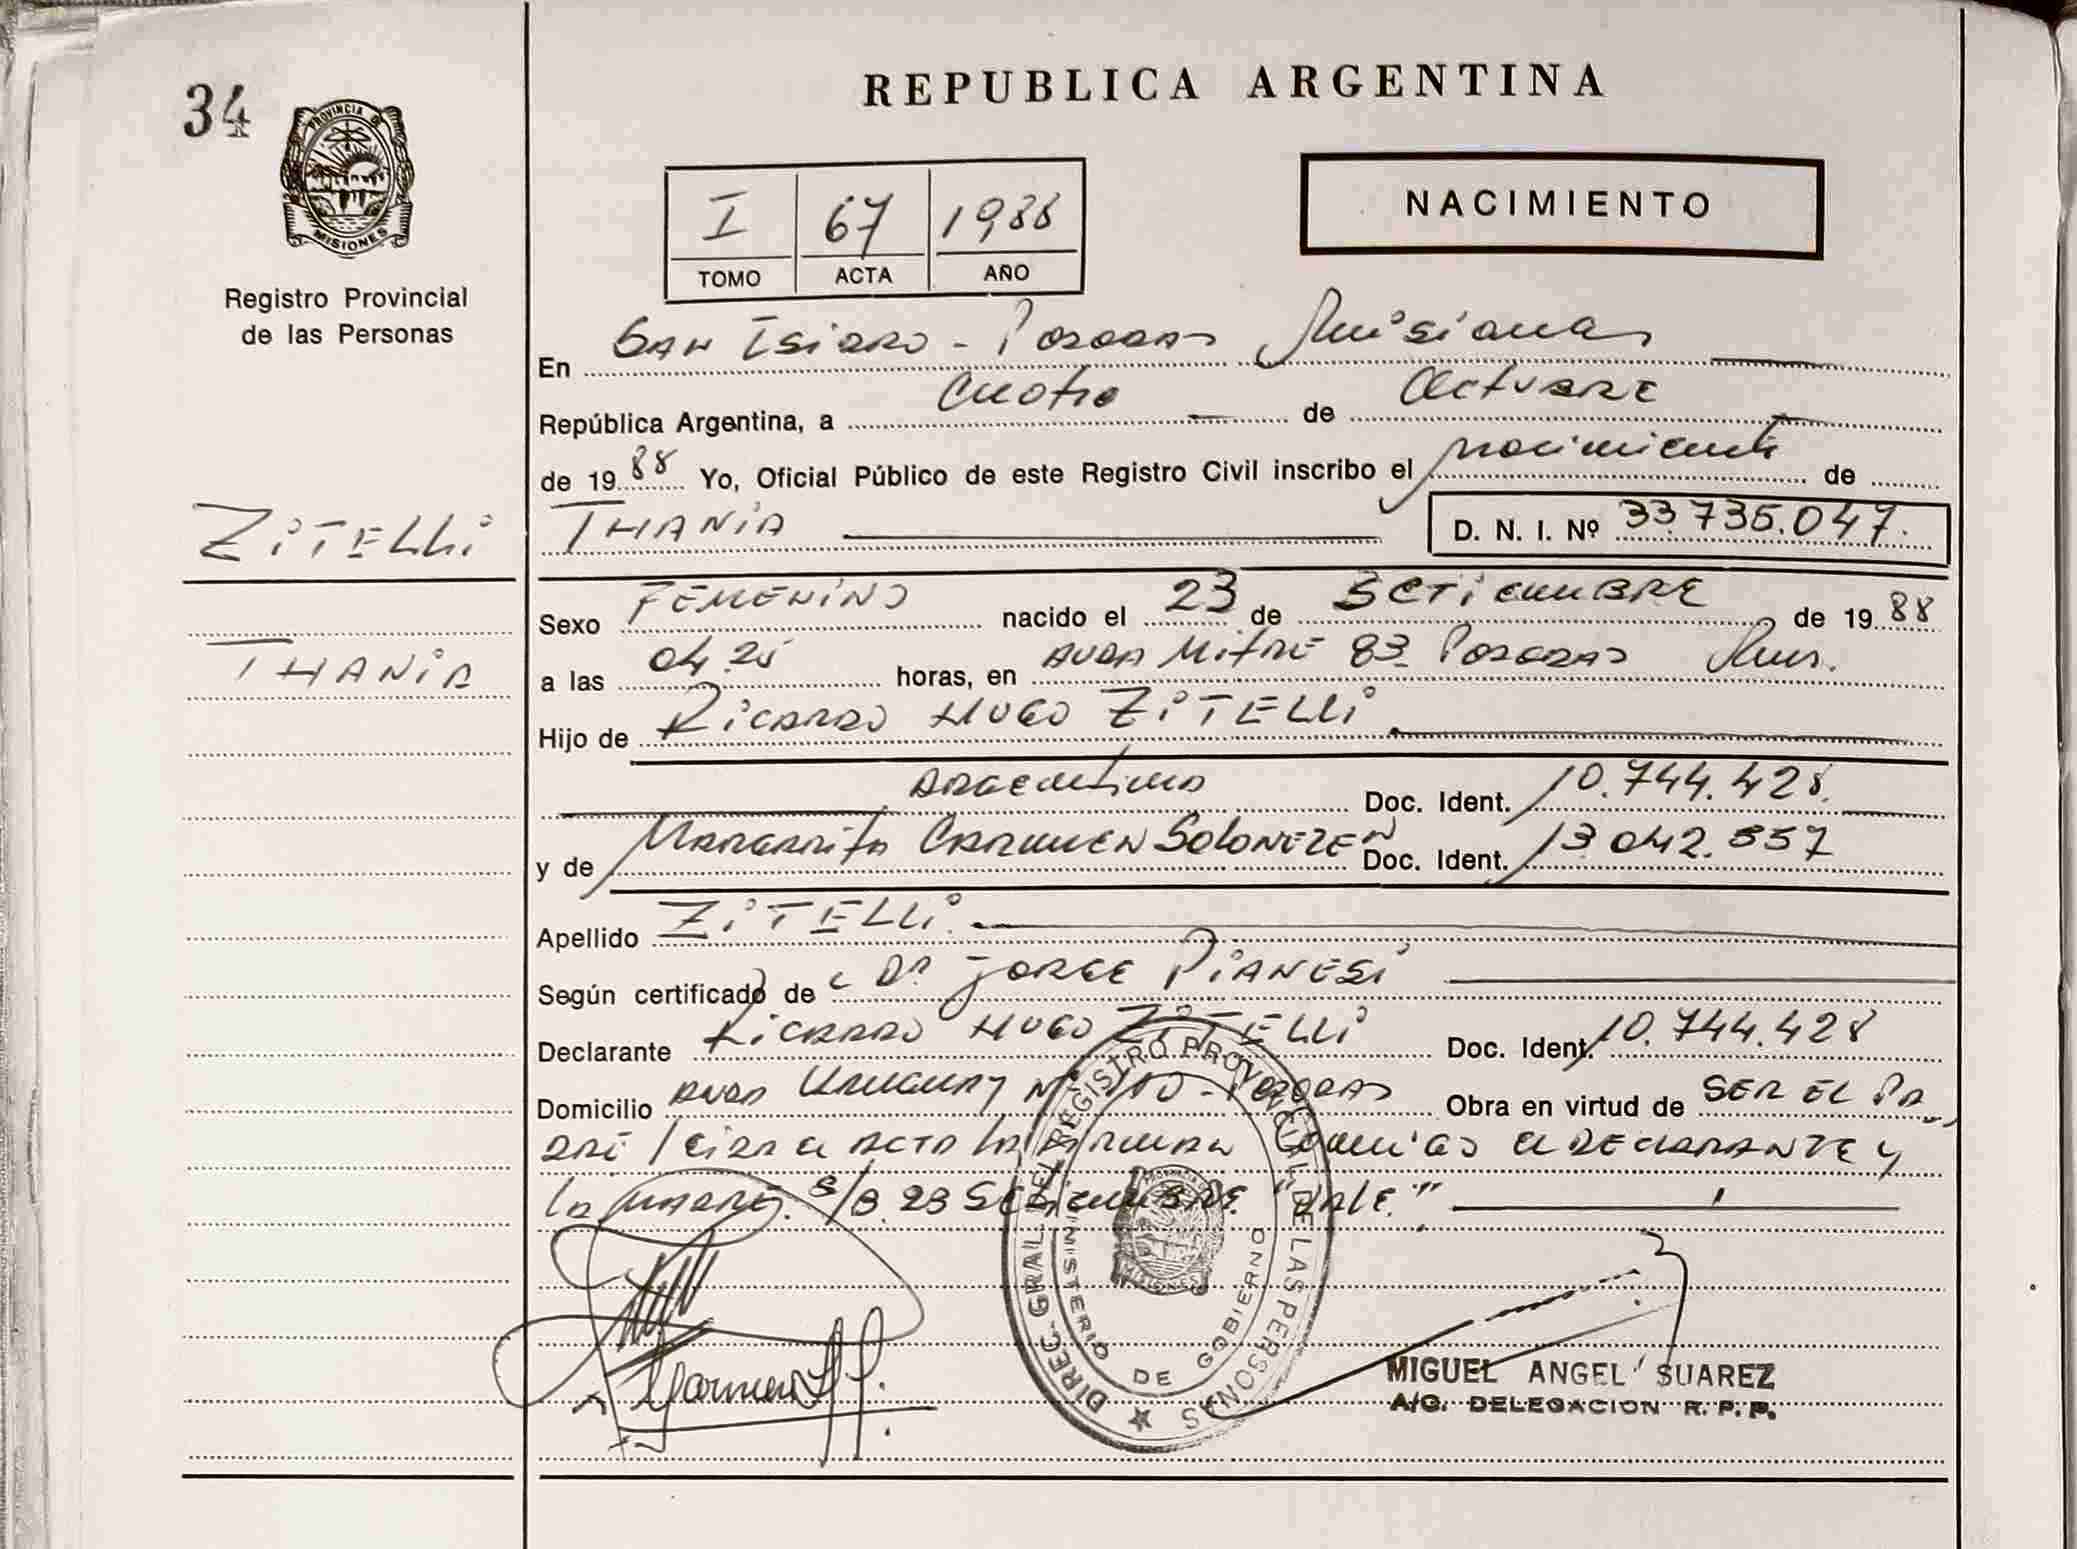 34
PROVINCIA D
MISIONES
Registro Provincial
de las Personas
REPUBLICA ARGENTINA
I 67 1988
TOMO ACTA AÑO
NACIMIENTO
En San Isidro - Posadas Misiones
República Argentina, a Cuatro de Octubre
de 19 88 Yo, Oficial Público de este Registro Civil inscribo el nacimiento de
ZiTELLi THANiA D. N. I. Nº 33.735.047.
Sexo FEMENiNO nacido el 23 de SETiEMBRE de 19 88
THANiA
a las 04.25 horas, en AVDA MiTRE 83 POSADAS Mis.
Hijo de RiCARDO HUGO ZiTELLi
ARGENTiNO Doc. Ident. 10.744.428.
y de MARGARiTA CARMEN Doc. Ident. 13.042.557
Apellido ZiTELLi
Según certificado de Dr JORGE PiANESi
Declarante RiCARDO HUGO ZiTELLi Doc. Ident. 10.744.428
Domicilio AVDA URUGUAY Nº - POSADAS Obra en virtud de SER EL PA
DRE LEiDA EL ACTA LA FiRMAN CONMiGO EL DECLARANTE Y
LA MADRE. S/B. 23 SETiEMBRE "VALE"
DIREC. GRAL. DEL REGISTRO PROVINCIAL DE LAS PERSONAS
MINISTERIO DE GOBIERNO
MISIONES
MIGUEL ANGEL SUAREZ
A/C. DELEGACION R. P. P.